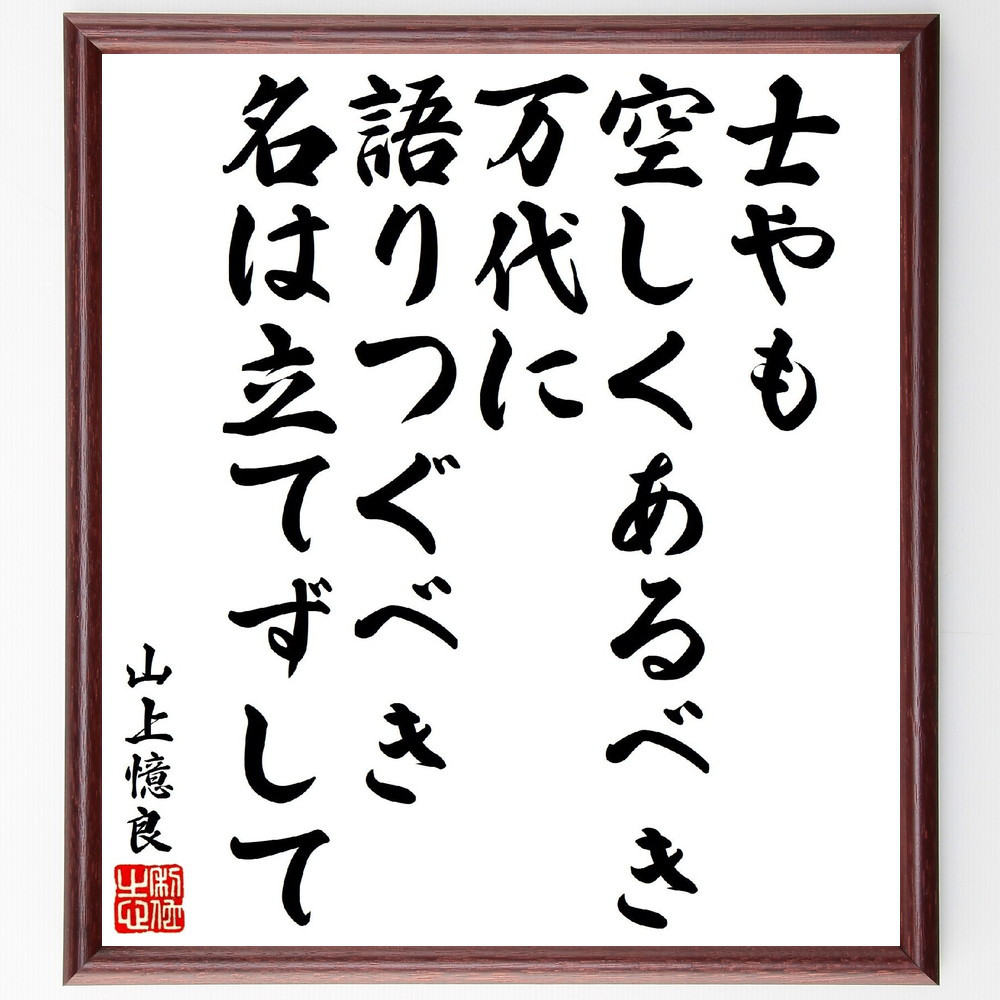 士やも
空しくあるべき
万代に
語りつぐべき
名は立てずして
山上憶良